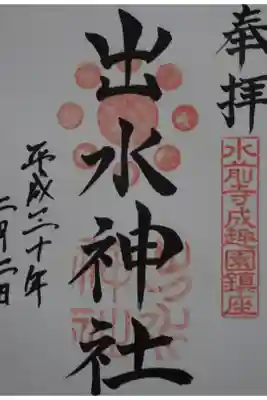 奉拝
水前寺成趣園鎮座
出水神社
出水神社
平成三十年
二月二日